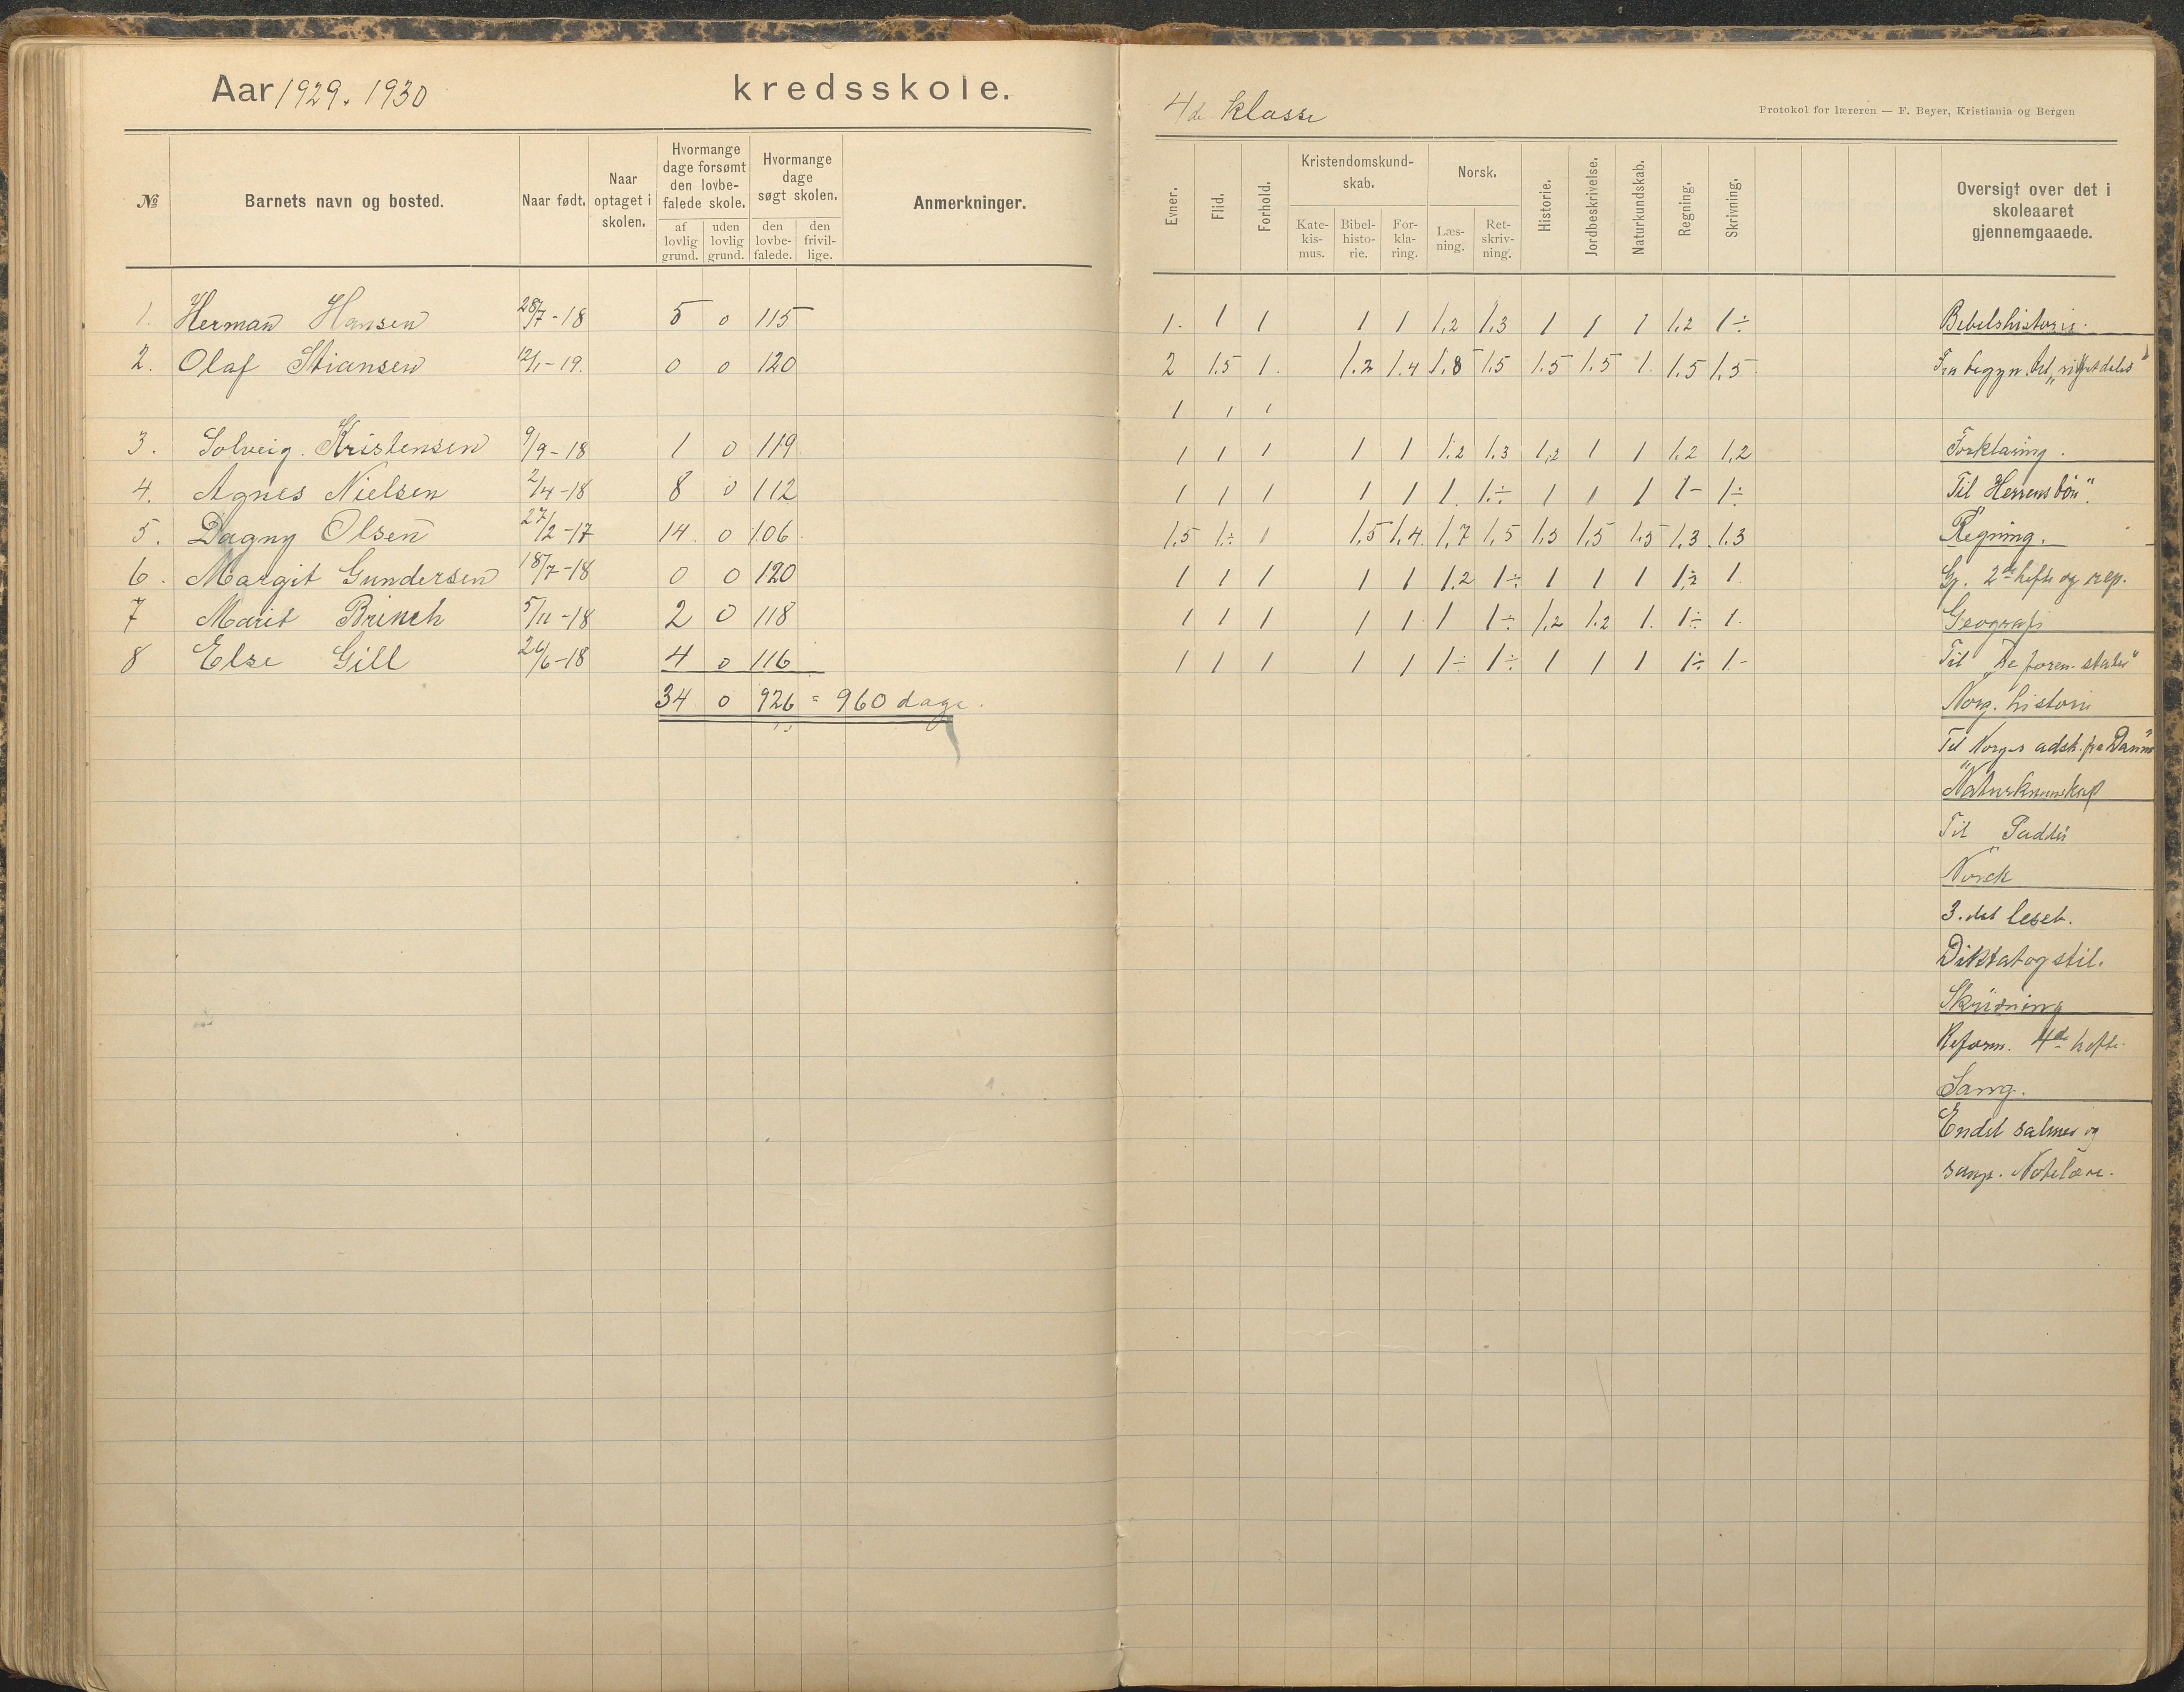 Aar 1929. 1930 kredsskole.
№
Barnets navn og bosted.
Naar født.
Naar optaget i skolen.
Hvormange dage forsømt den lovbefalede skole.
af lovlig grund.
uden lovlig grund.
Hvormange dage søgt skolen.
den lovbefalede.
den frivillige.
Anmerkninger.
1. Herman Hansen 28/7-18 5 0 115
2. Olaf Stiansen 12/1-19. 0 0 120
3. Solveig. Kristensen 9/9-18 1 0 119
4. Agnes Nielsen 2/4-18 8 0 112
5. Dagny Olsen 27/2-17 14 0 106
6. Margit Gundersen 18/7-18 0 0 120
7 Marit Brinch 5/11-18 2 0 118
8 Else Gill 26/6-18 4 0 116
34 0 926 = 960 dage.
4de klasse
Protokol for læreren — F. Beyer, Kristiania og Bergen
Evner.
Flid.
Forhold.
Kristendomskundskab.
Katekismus.
Bibelhistorie.
Forklaring.
Norsk.
Læsning.
Retskrivning.
Historie.
Jordbeskrivelse.
Naturkundskab.
Regning.
Skrivning.
Oversigt over det i skoleaaret gjennemgaaede.
1. 1 1 1 1 1,2 1,3 1 1 1 1,2 1÷
2 1.5 1. 1.2 1.4 1.8 1.5 1.5 1.5 1. 1.5 1.5
1 1 1
1 1 1 1 1 1.2 1.3 1,2 1 1 1.2 1.2
1 1 1 1 1 1. 1.÷ 1 1 1 1- 1÷
1.5 1.÷ 1 1.5 1.4 1.7 1.5 1.5 1.5 1.5 1.3 1.3
1 1 1 1 1 1.2 1÷ 1 1 1 1.2 1.
1 1 1 1 1 1 1÷ 1.2 1.2 1. 1÷ 1.
1 1 1 1 1 1÷ 1÷ 1 1 1 1÷ 1-
Bibelshistorie.
Fra begyn. til "riket deles"
Forklaring.
Til Herrens bøn".
Regning.
Gj. 2det hefte og rep.
Geografi
Til "De foren. stater"
Norg. historie
Til Norges adsk. fra Danm
Naturkunnskap
Til Padder
Norsk
3.det leseb.
Diktat og stil.
Skrivning
Reform. 4de hefte.
Sang.
Endel salmer og
sange. Notelære.